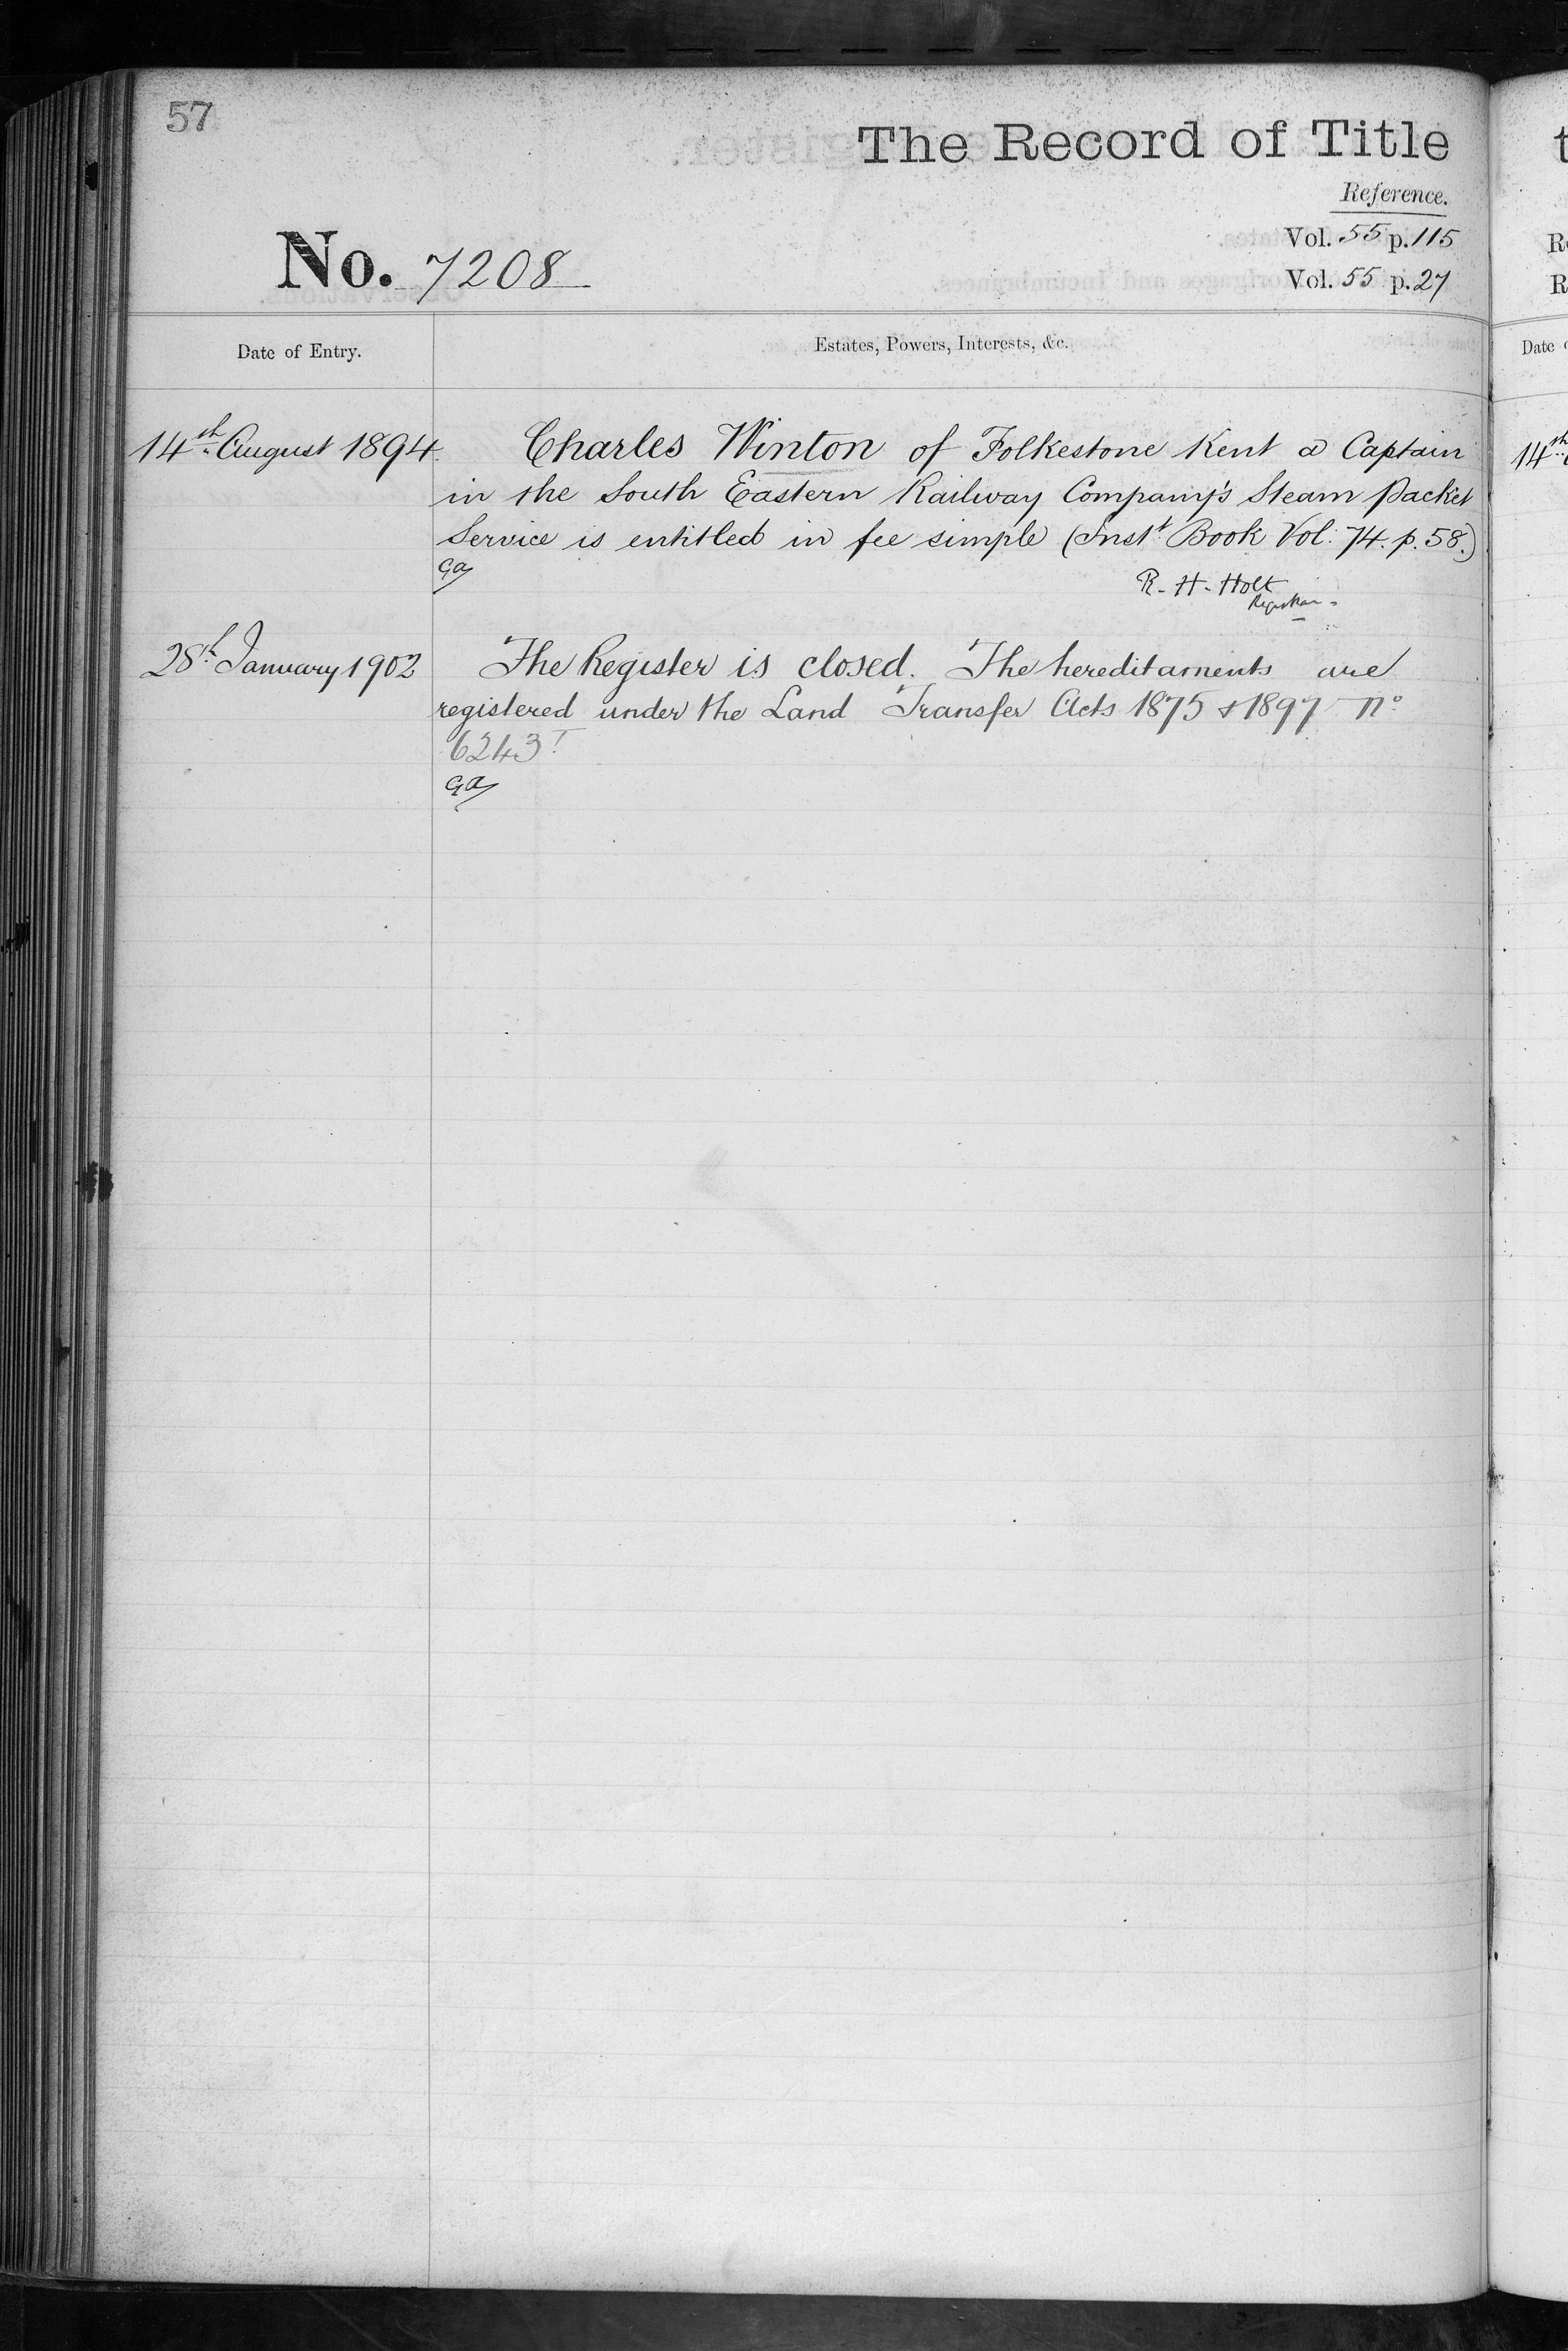 57
The Record of Title
Reference.
No. 7208
Vol. 55 p. 115
Vol. 55 p. 27
Date of Entry.
Estates, Powers, Interests, &c.
14th August 1894
Charles Winton of Folkestone Kent a Captain
in the South Eastern Railway Company's Steam Packet
Service is entitled in fee simple (Inst t Book Vol: 74. p. 58.)
R. H. Holt
Registrar
28th January 1902
The Register is closed. The hereditaments are
registered under the Land Transfer Acts 1875 & 1897 No
6243 I
Date
14th